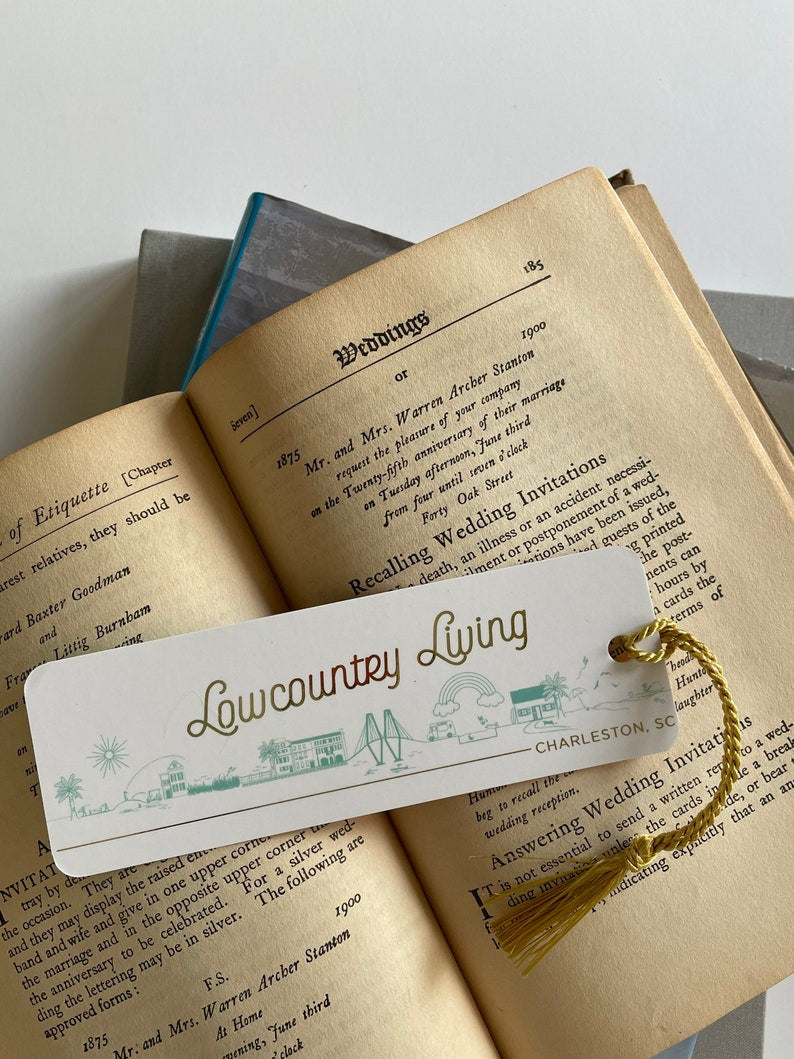 of Etiquette [Chapter
arest relatives, they should be
ard Baxter Goodman
and
Littig Burnham
INVITAT
tray by de
the occasion. They are e
and they may display the raised
band and wife and give in one upper corner
the marriage and in the opposite upper corner the
the anniversary to be celebrated. For a silver wed-
ding the lettering may be in silver. The following are
approved forms:
1900
F.S.
1875 Mr. and Mrs. Warren Archer Stanton
At Home
evening, June third
o'clock
185
Weddings
Seven]
or
1900
1875
Mr. and Mrs. Warren Archer Stanton
request the pleasure of your company
on the Twenty-fifth anniversary of their marriage
on Tuesday afternoon, June third
from four until seven o'clock
Forty Oak Street
Recalling Wedding Invitations
death, an illness or an accident necessi-
ilment or postponement of a wed-
itations have been issued,
ited guests of the
printed
the post-
ments can
hours by
cards the
terms of
Lowcountry Living
CHARLESTON, SC
beg to recall the
wedding reception.
Answering Wedding Invitations
It is not essential to send a written reply to a wed-
ding invitation unless the cards include a break
indicating explicitly that an